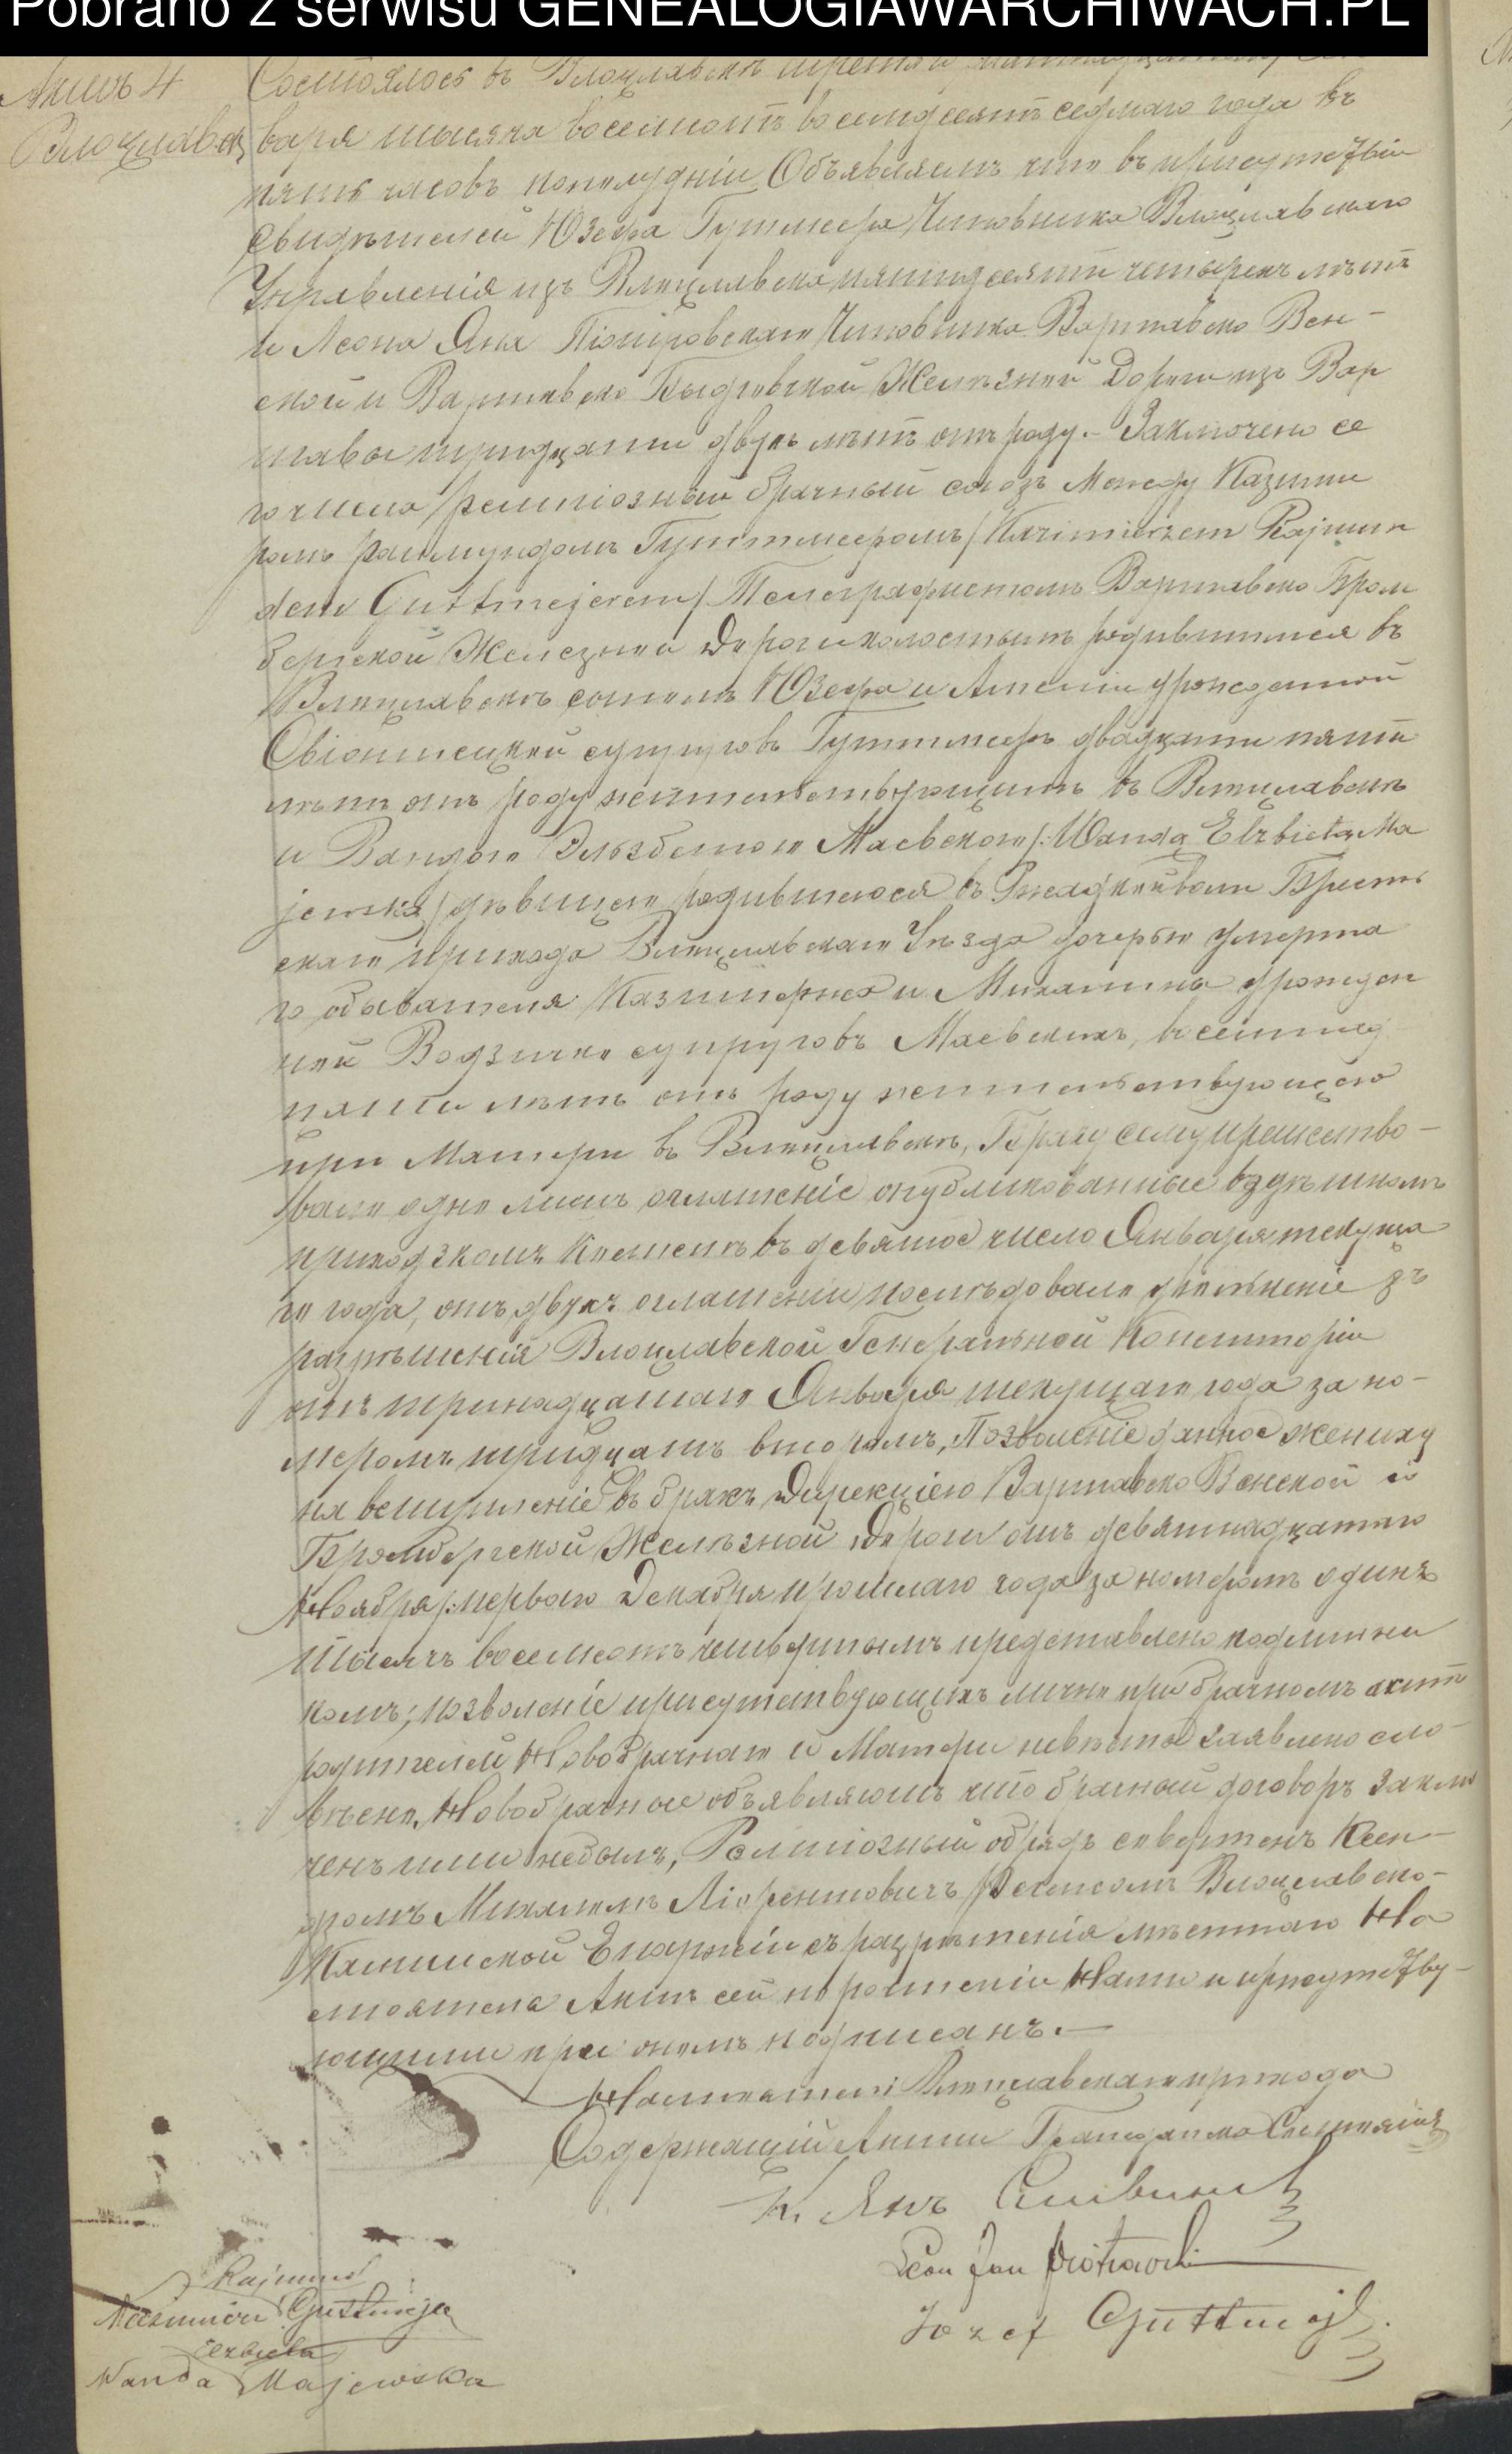 Pobrano z serwisu GENEALOGIAWARCHIWACH.PL
Актъ 4
Влоцлавекъ
Состоялось въ Влоцлавскѣ
варя тысяча восемьсотъ восемдесятъ седмаго года въ
пять часовъ пополудни Объявляемъ что въ присутствіи
свидѣтелей Юзефа Гутмеера Чиновника Влоцлавскаго
Управленія изъ Влоцлавска пятидесяти четырехъ лѣтъ
и Леона Яна Піотровскаго Чиновника Варшавско Вен-
ской и Варшавско Быдговской Желѣзной Дороги изъ Вар
шавы тридцати двухъ лѣтъ отъ роду.- Заключено се
го числа религіозный брачный союзъ Между Казими
ромъ Раймундомъ Гуттмееромъ /Kazimierzem Rajmun
dem Guttmejerem/ Телеграфистомъ Варшавско Бром
бергской Железной Дороги холостымъ родившимся въ
Влоцлавскѣ сыномъ Юзефа и Амелии урожденной
супруговъ Гуттмееръ двадцати пяти
лѣтъ отъ роду жительствующимъ въ Влоцлавскѣ
и Вандою Эльзбетою Маевскою /:Wandą Elżbietą Ma
jewską/ дѣвицею родившеюся въ Брест
скаго прихода Влоцлавскаго Уѣзда дочерью умерша
го обывателя Казимержа и Михалины урожден
ной супруговъ Маевскихъ, восемнад
цати лѣтъ отъ роду жительствующею
при Матери въ Влоцлавскѣ, Браку сему предшество-
вало одно лишь оглашеніе опубликованные въ здѣшномъ
приходзкомъ Костелѣ въ девятое число Января текуща
го года, отъ двухъ оглашеній послѣдовало увольненіе съ
разрѣшенія Влоцлавской Генеральной Консисторіи
отъ тринадцатаго Января текущаго года за но-
меромъ тридцать вторымъ, Позволеніе данное жениху
на вступленіе въ бракъ Дирекціею Варшавско Венской и
Бромбергской Желѣзной Дороги отъ девятнадцатаго
Ноября /:перваго Декабря прошлаго года за номеромъ одинъ
тысячъ восемсотъ четвертымъ представлено подлинни
комъ; позволеніе присутствующихъ лично при брачномъ актѣ
родителей Новобрачнаго и Матери невѣсты заявлено сло-
весно, Новобрачные объявляютъ что брачный договоръ заклю
ченъ ими небылъ, Религіозный обрядъ совершенъ Ксен-
дзомъ Михаиломъ Лиорентовичъ Влоцлавско-
Калишской Епархіи съ разрѣшенія мѣстнаго На
стоятела Актъ сей по прочтеніи Нами и присутству-
ющими при ономъ подписанъ.—
Настоятель Влоцлавскаго прихода
Содержащій Акты Гражданскаго Состоянія
К. Янъ
Leon Jan Piotrowski
Józef Guttmejer
Rajmund
Kazimierz Guttmejer
Elżbieta
Wanda Majewska